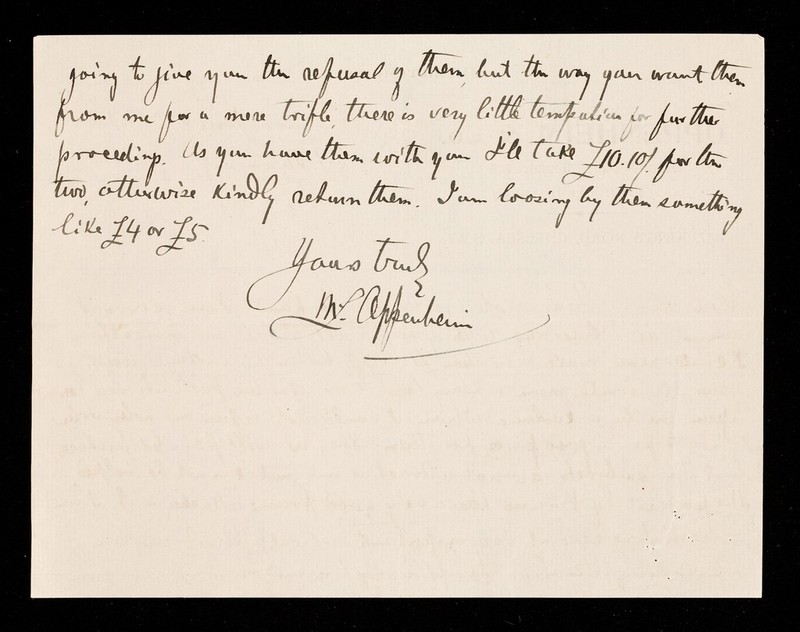 going to give you the refusal of them, but the way you want them
from me for a mere trifle, there is very little temptation for further
proceedings. As you have them with you I'le take £10.10/. for the
two, otherwise kindly return them. I am loosing by them something
like £4 or £5.
Yours truly
W. Oppenheim